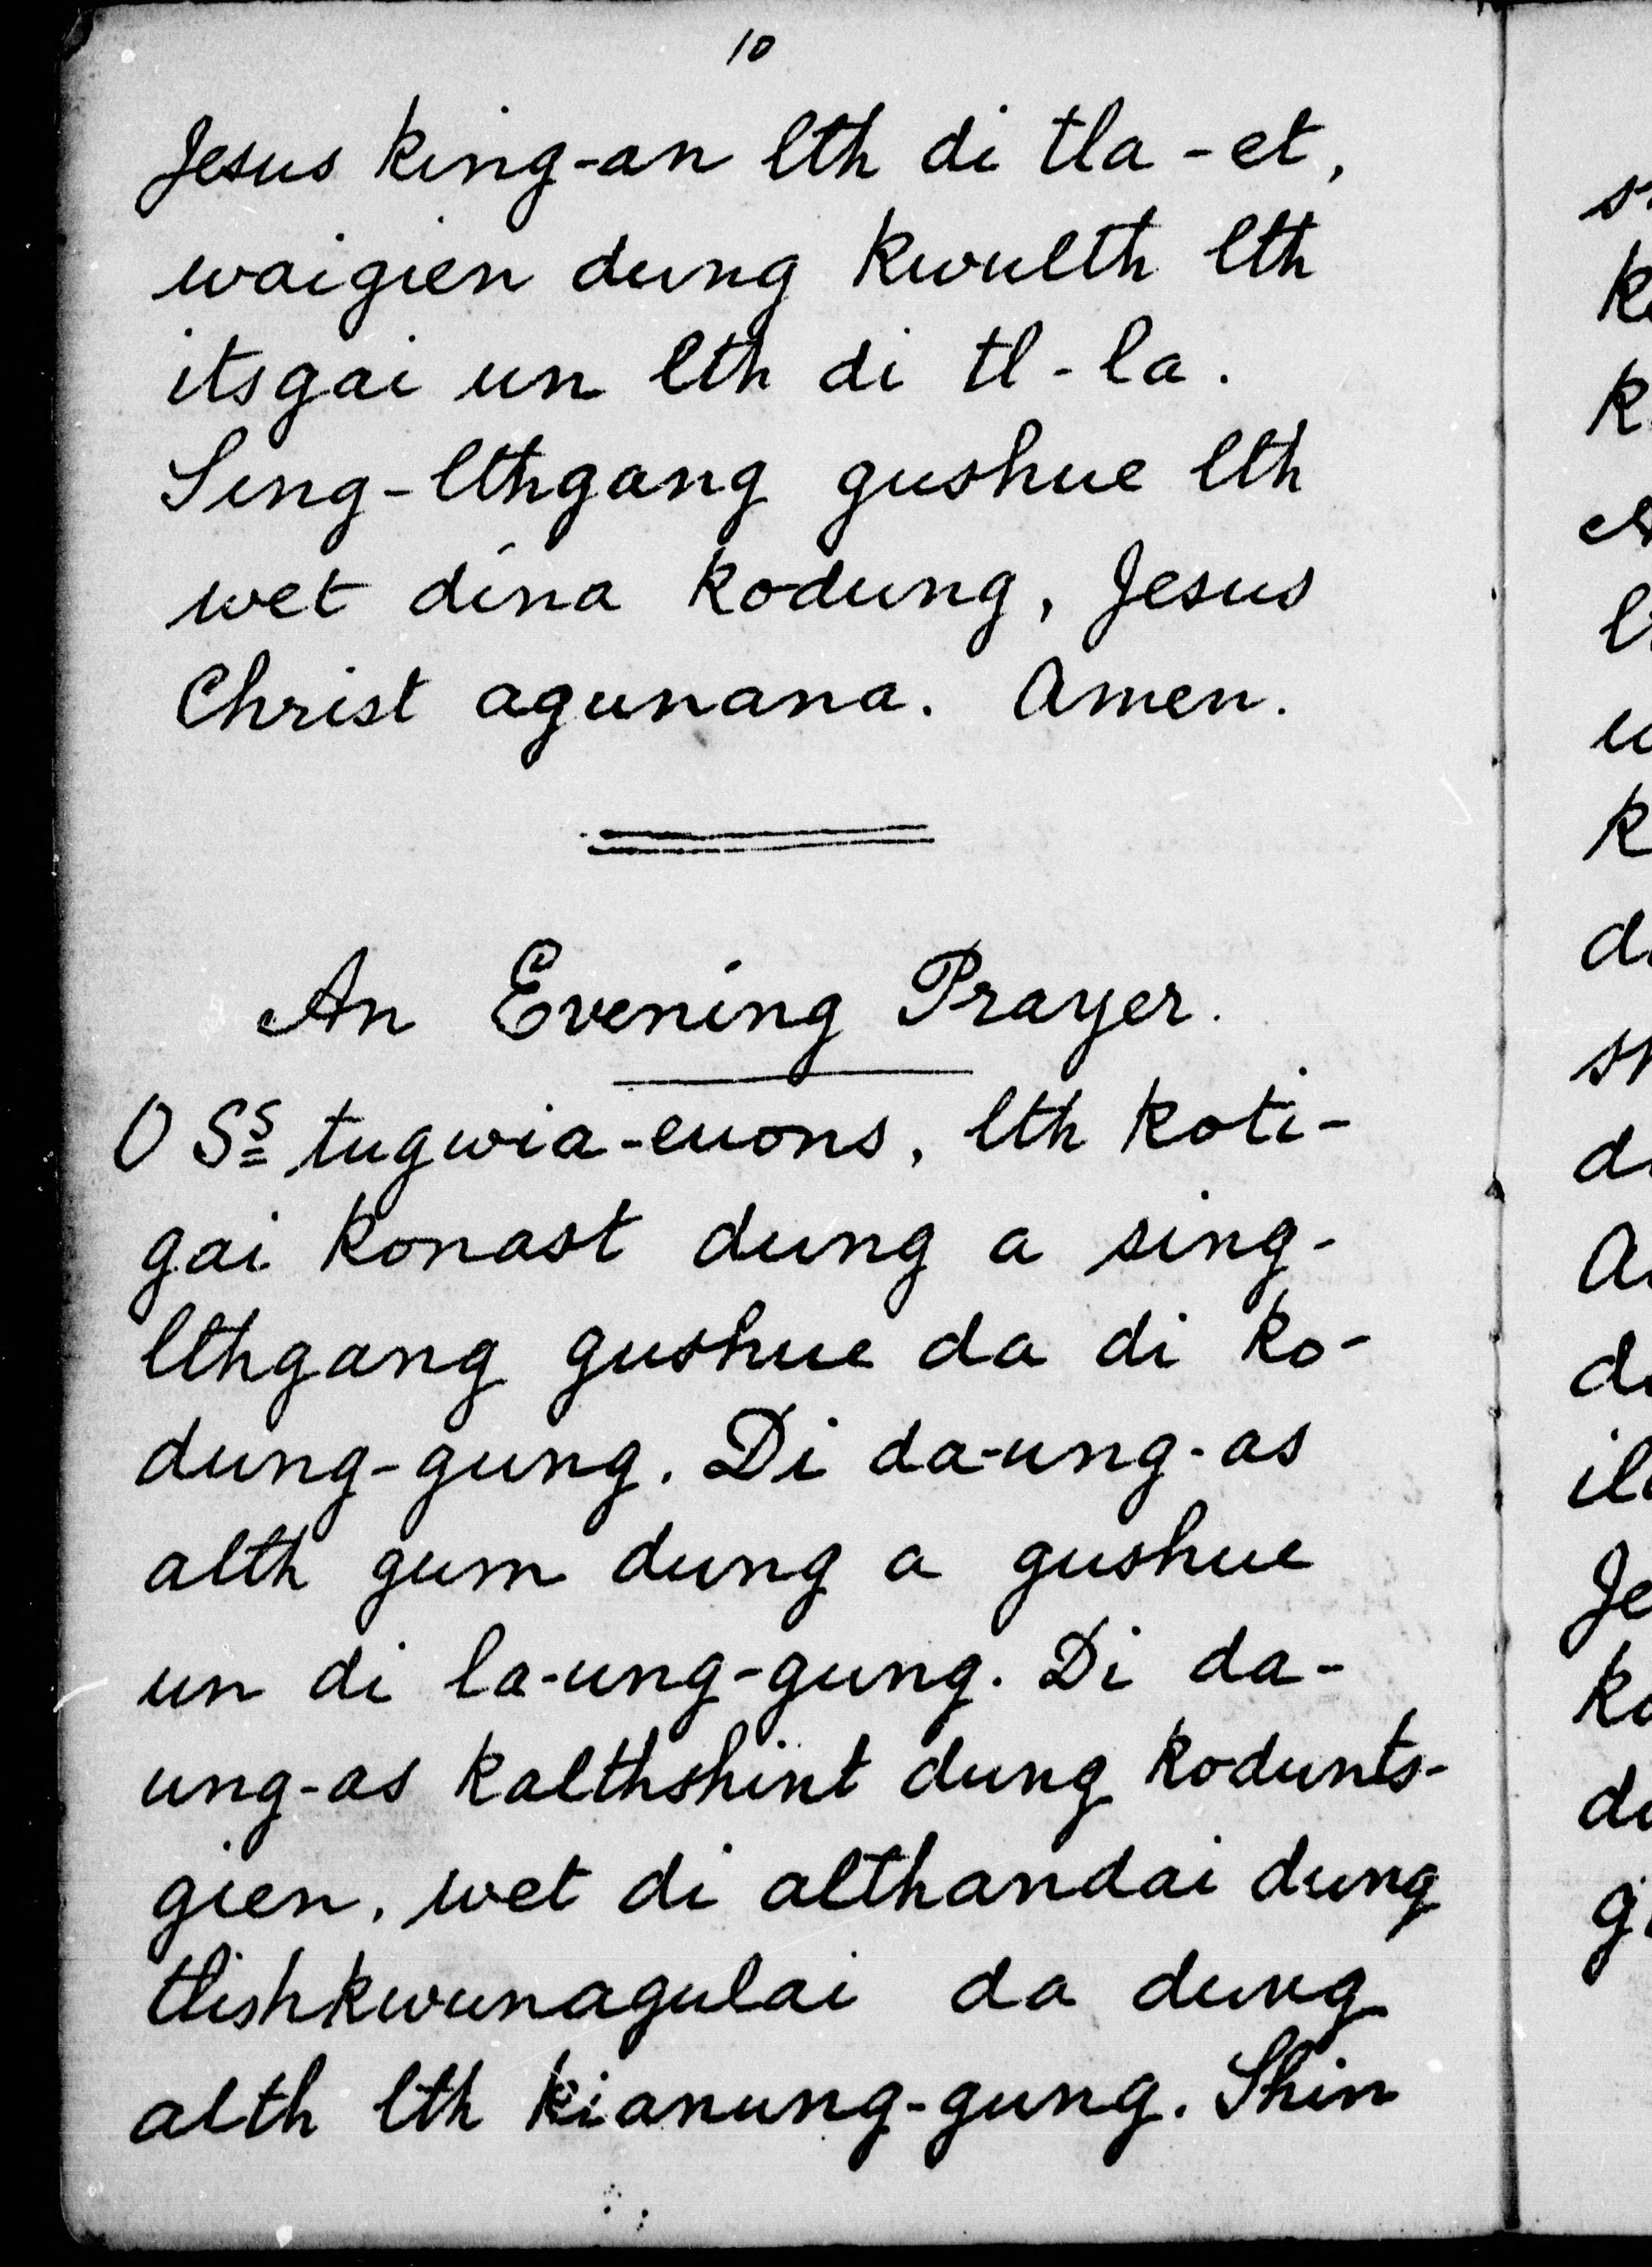 10
Jesus king-an lth di tla-et,
waigien dung kwulth lth
itsgai un lth di tl-la.
Sing-lthgang gushue lth
wet dina kodung, Jesus
Christ agunana. Amen.
An Evening Prayer.
O Ss tugwia-euons, lth koti-
gai konast dung a sing-
lthgang gushue da di ko-
dung-gung. Di da-ung-as
alth gum dung a gushue
un di la-ung-gung. Di da-
ung-as kalthshint dung kodunts-
gien, wet di althandai dung
tlishkwunagulai da dung
alth lth kianung-gung. Shin